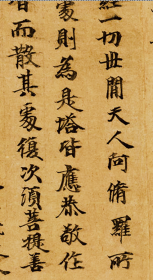 經一切世間天人阿脩羅所
處則為是塔皆應恭敬作
香而散其處復次須菩提善